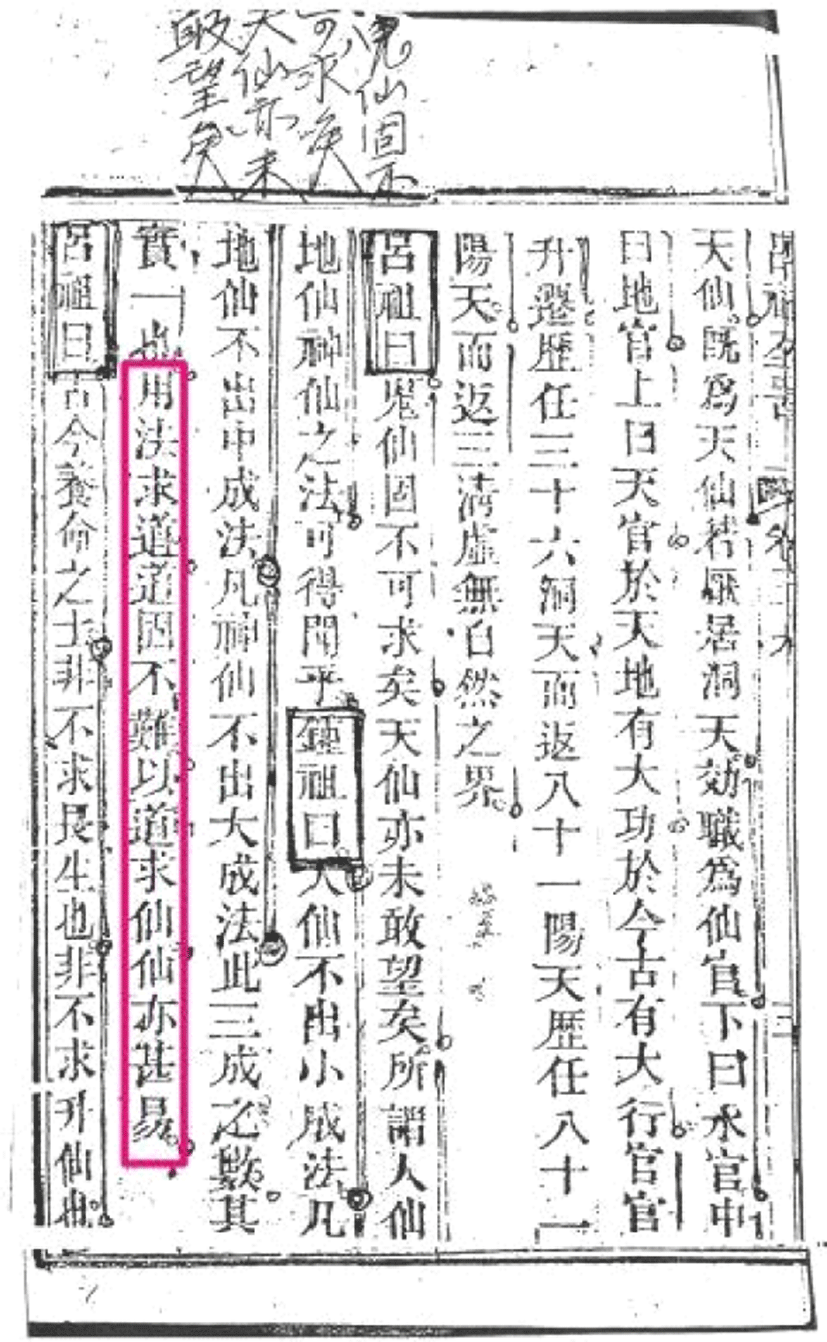 鬼仙固不
可求矣
天仙亦未
敢望矣
天仙既為天仙若厭居洞天効職為仙官下曰水官中
曰地官上曰天官於天地有大功於今古有大行官官
升遷歷任三十六洞天而返八十一陽天歷任八十一
陽天而返三清虛無自然之界
呂祖曰鬼仙固不可求矣天仙亦未敢望矣所謂人仙
地仙神仙之法可得聞乎鍾祖曰人仙不出小成法凡
地仙不出中成法凡神仙不出大成法此三成之數其
實一也用法求道道固不難以道求仙仙亦甚易
呂祖曰古今養命之士非不求長生也非不求升仙也